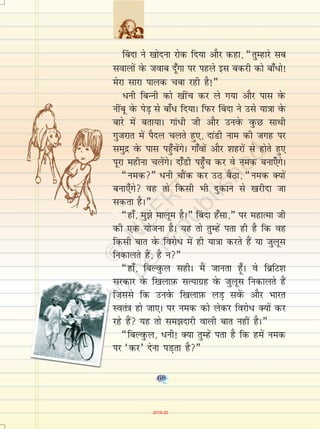 बिंदा ने खोदना रोक दिया और कहा, “तुम्हारे सब
सवालों के जवाब दूँगा पर पहले इस बकरी को बाँधो!
मेरा सारा पालक चबा रही है!”
धनी बिन्नी को खींच कर ले गया और पास के
नींबू के पेड़ से बाँध दिया। फिर बिंदा ने उसे यात्रा के
बारे में बताया। गांधी जी और उनके कुछ साथी
गुजरात में पैदल चलते हुए, दांडी नाम की जगह पर
समुद्र के पास पहुँचेंगे। गाँवों और शहरों से होते हुए
पूरा महीना चलेंगे। दाँडी पहुँच कर वे नमक बनाएँगे।
“नमक?” धनी चौंक कर उठ बैठा, “नमक क्यों
बनाएँगे? वह तो किसी भी दुकान से खरीदा जा
सकता है।”
“हाँ, मुझे मालूम है।” बिंदा हँसा,” पर महात्मा जी
की एक योजना है। यह तो तुम्हें पता ही है कि वह
किसी बात के विरोध में ही यात्रा करते हैं या जुलूस
निकालते हैं, है ने?”
“हाँ, बिल्कुल सही। मैं जानता हूँ। वे ब्रिटिश
सरकार के खिलाफ़ सत्याग्रह के जुलूस निकालते हैं
जिससे कि उनके खिलाफ़ लड़ सकें और भारत
स्वतंत्र हो जाए। पर नमक को लेकर विरोध क्यों कर
रहे हैं? यह तो समझदारी वाली बात नहीं है।”
“बिल्कुल, धनी! क्या तुम्हें पता है कि हमें नमक
पर ‘कर’ देना पड़ता है?”
68
2019-20